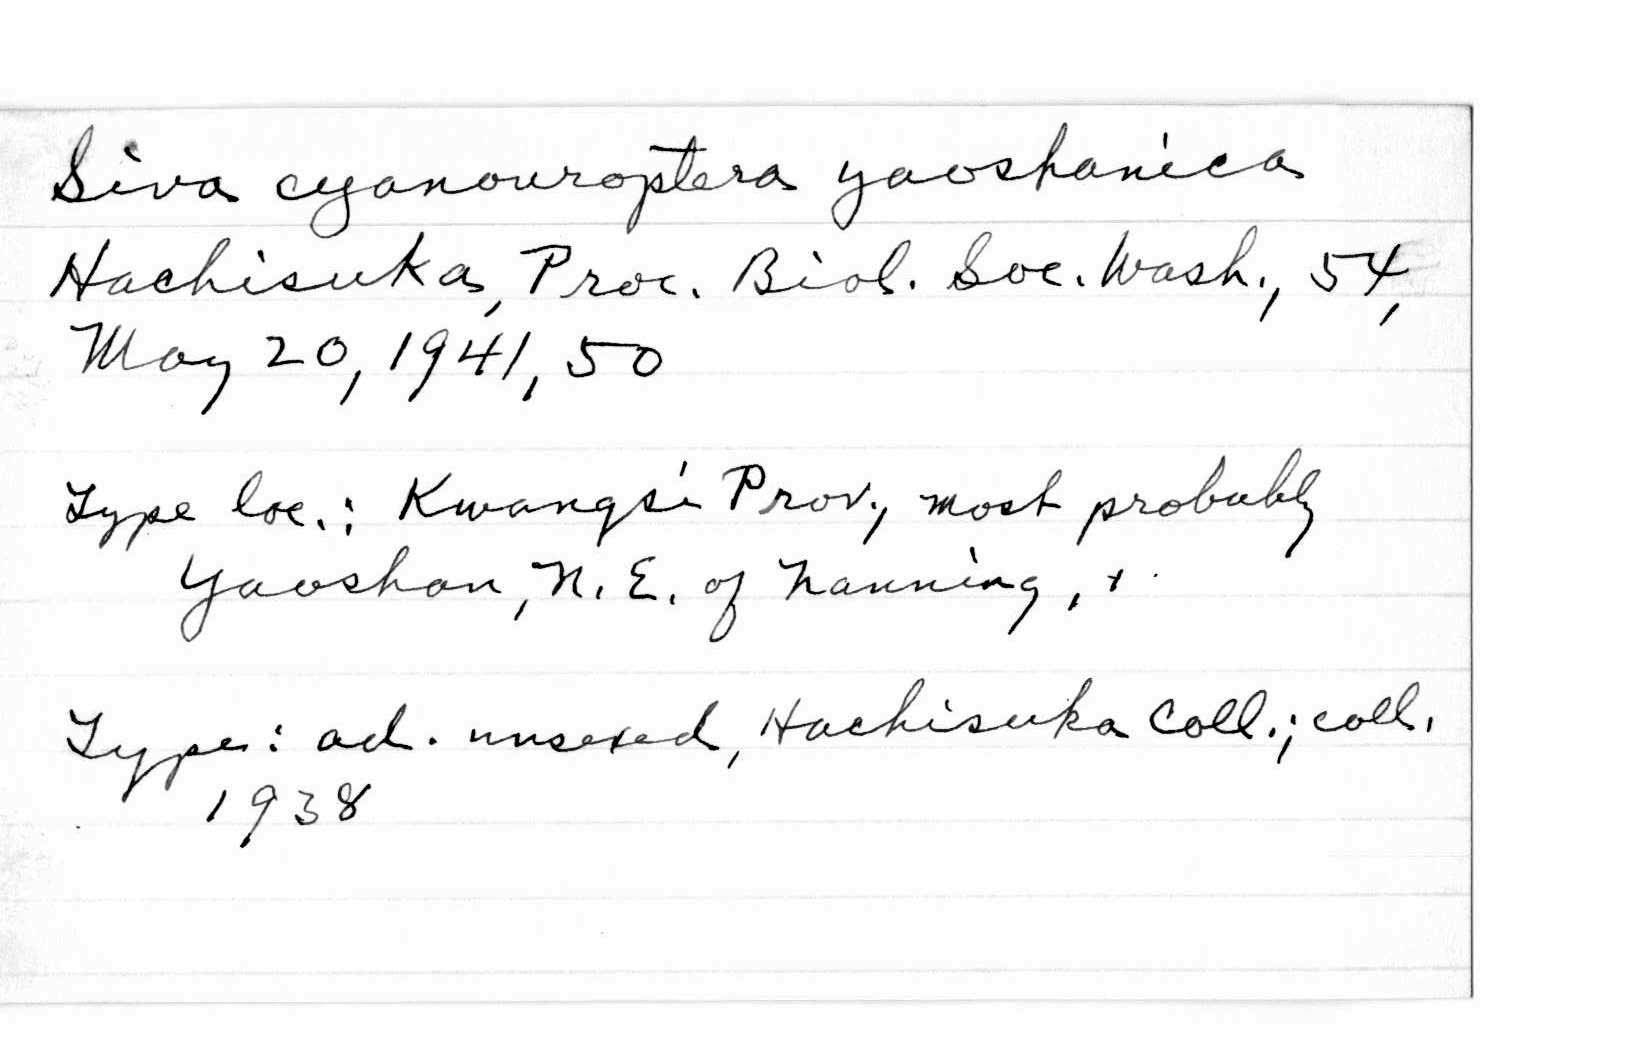 Siva cyanouroptera yaoshanica
Hachisuka, Proc. Biol. Soc. Wash., 54,
May 20, 1941, 50
Type loc.: Kwangsi Prov., most probably
Yaoshan, N.E. of Nanning, +.
Type: ad. unsexed, Hachisuka Coll.; coll.
1938